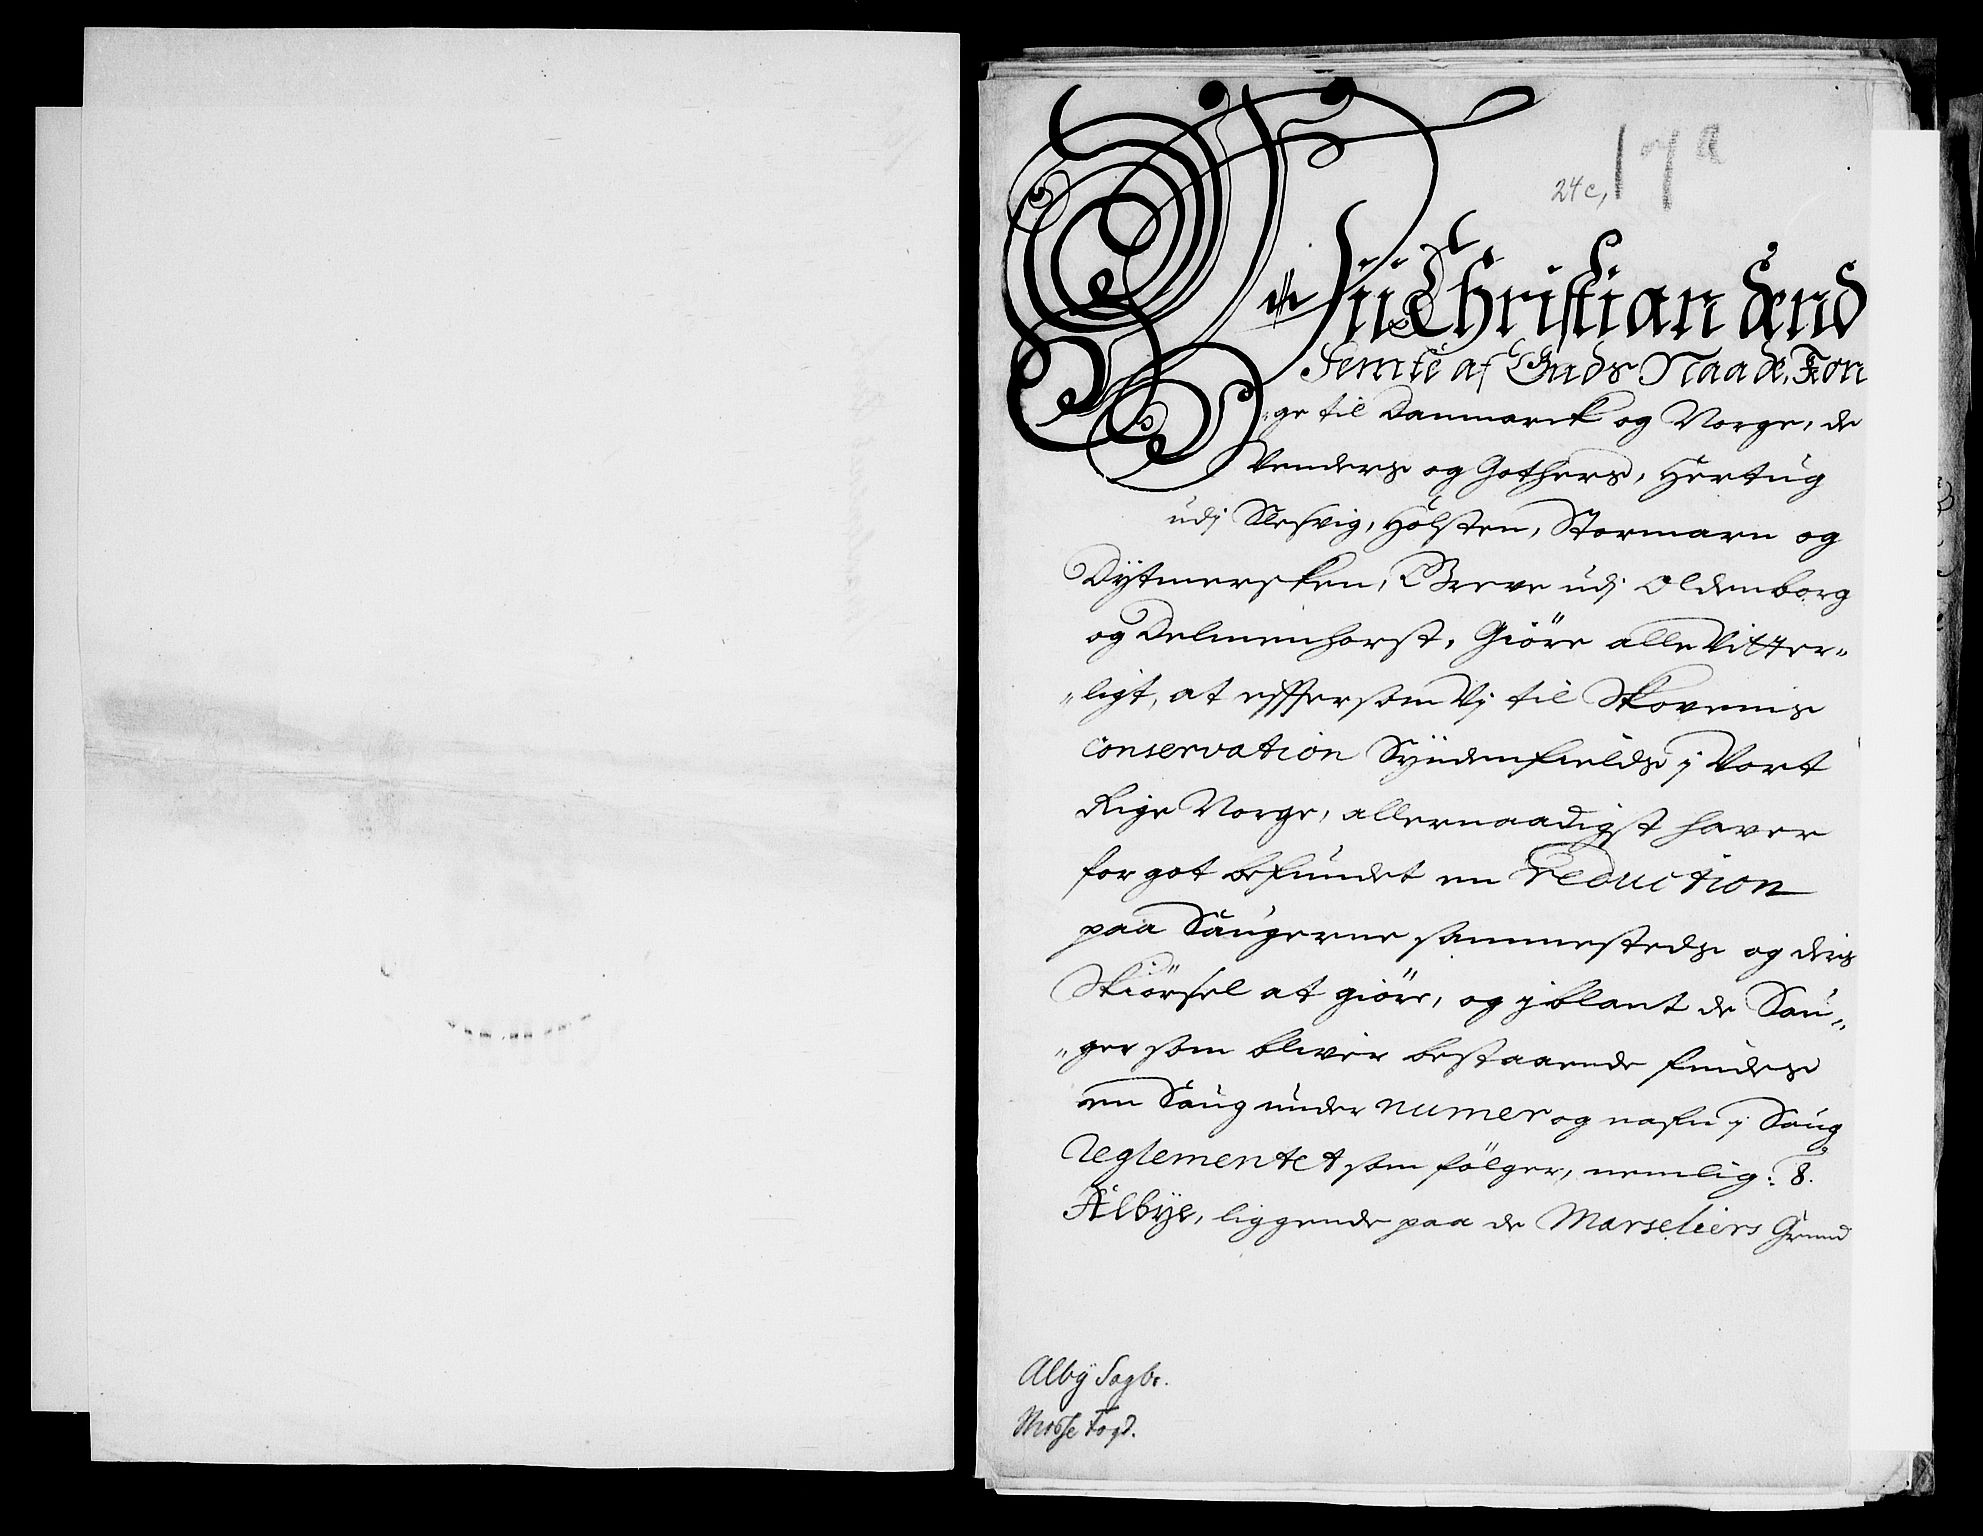 24c, 17a
Vii Christian dend
Femte af Guds Naade, Kon
-ge til Danmarck og Norge, de
Venders og Gothers, Hertug
udj Slesvig, Holsten, Stormarn og
Dytmersken, Greve udj Oldenborg
og Delmenhorst, Giöre alle Vitter-
-ligt, at eftersom Vj til Skovenis
conservation Syndenfields j Vort
Rige Norge, allernaadigst haver
for got befundet en reduction
paa Saugerne sammesteds og deris
Skiörsel at giöre, og jblant de Sau-
-ger som bliver bestaaende findes
en Saug under numer og nafn j Saug
reglementet som fölger, nemlig: 8.
Albye, liggende paa de Marseliers Grund
Alby Sagbr.
Mosse Fogd.